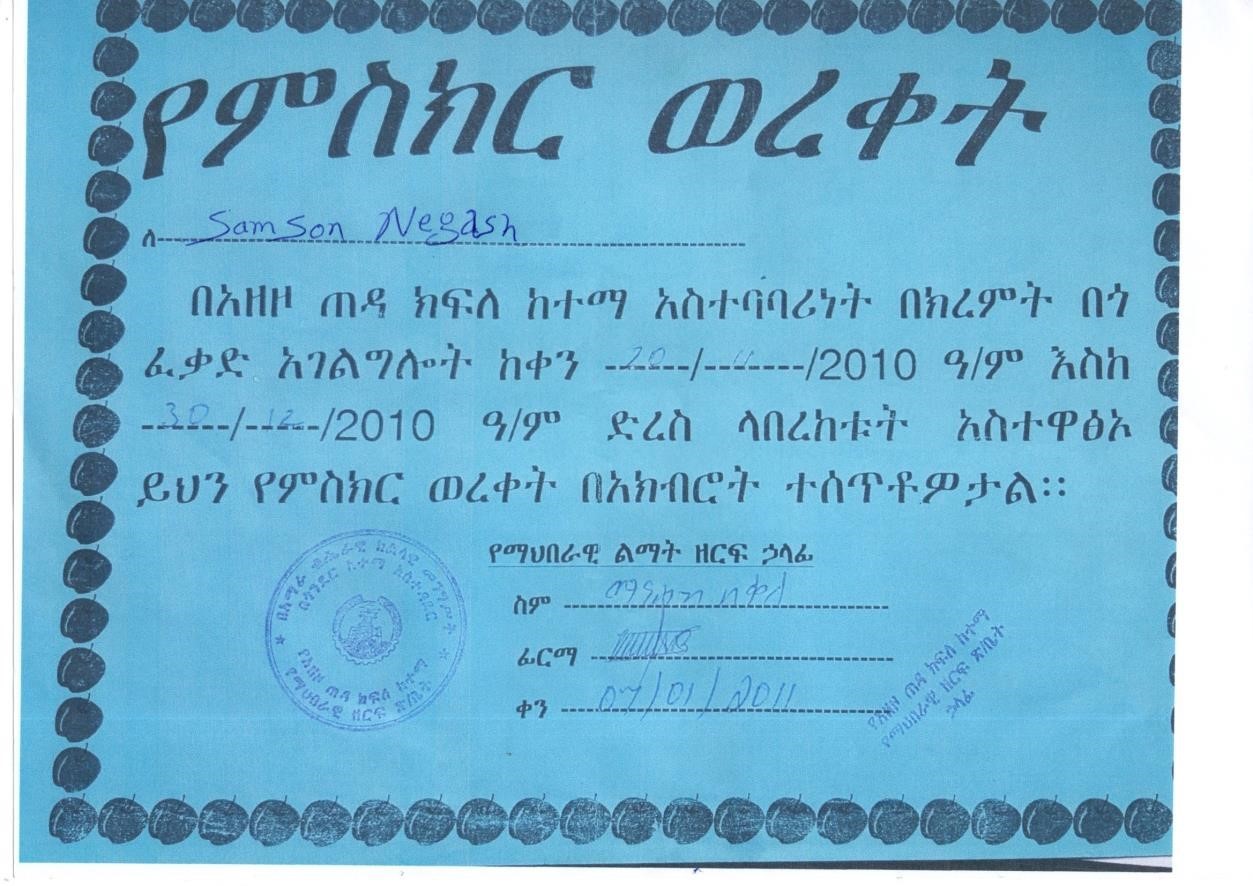 የምስክር ወረቀት
ለ Samson Negash
በአዘዞ ጠዳ ክፍለ ከተማ አስተባባሪነት በክረምት በጎ
ፈቃድ አገልግሎት ከቀን 20/11/2010 ዓ/ም እስከ
30/12/2010 ዓ/ም ድረስ ላበረከቱት አስተዋፅኦ
ይህን የምስክር ወረቀት በአክብሮት ተሰጥቶዎታል፡፡
የማህበራዊ ልማት ዘርፍ ኃላፊ
ስም
ፊርማ
ቀን 07/01/2011
በአማራ ብሔራዊ ክልላዊ መንግሥት
በጎንደር ከተማ አስተዳደር
የአዘዞ ጠዳ ክፍለ ከተማ
የማህበራዊ ዘርፍ ጽ/ቤት
የአዘዞ ጠዳ ክፍለ ከተማ
የማህበራዊ ዘርፍ ጽ/ቤት
ኃላፊ